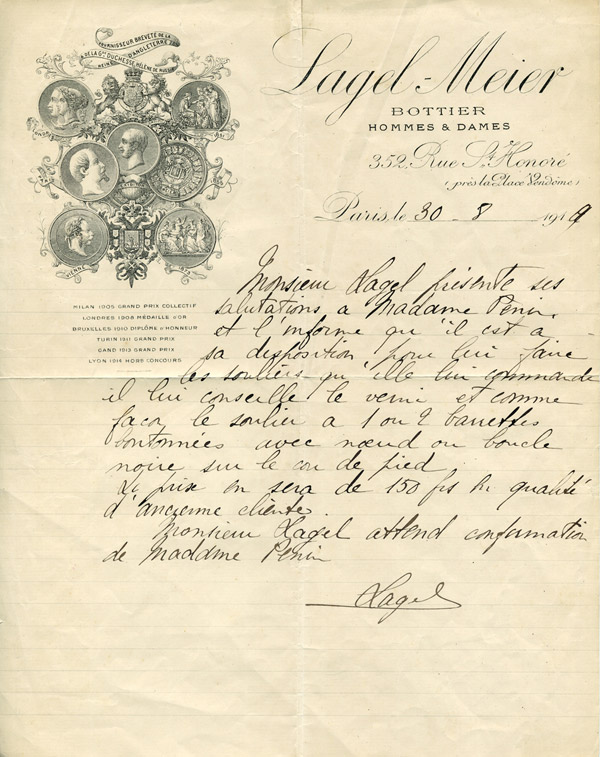 FOURNISSEUR BREVETÉ DE LA
REINE D'ANGLETERRE
DE LA Gde DUCHESSE HÉLÈNE DE RUSSIE
Lagel-Meier
BOTTIER
HOMMES & DAMES
352, Rue St Honoré
(près la Place Vendôme)
Paris, le 30 - 8 1919
VIENNE
1873
MILAN 1905 GRAND PRIX COLLECTIF
LONDRES 1908 MÉDAILLE D'OR
BRUXELLES 1910 DIPLÔME D'HONNEUR
TURIN 1911 GRAND PRIX
GAND 1913 GRAND PRIX
LYON 1914 HORS CONCOURS
Monsieur Lagel présente ses
salutations a Madame Penin,
et l'informe qu'il est a
sa disposition pour lui faire
les souliers qu'elle lui commande
il lui conseille le verni et comme
façon le soulier a 1 ou 2 barrettes
boutonnées avec nœud ou boucle
noire sur le cou de pied.
Le prix en sera de 150 frs en qualité
d'ancienne cliente.
Monsieur Lagel attend confirmation
de Madame Penin
Lagel